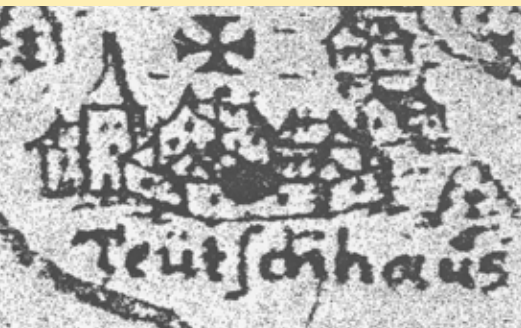 Teütſchhaus